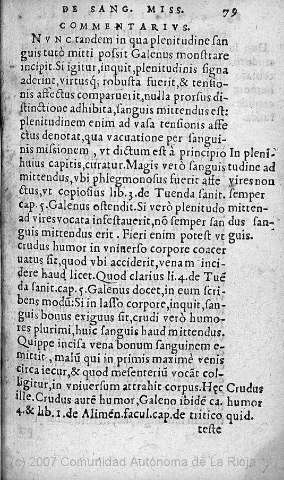 DE SANG. MISS. 79
COMMENTARIVS.
NVNC tandem in qua plenitudine san
guis tutò mitti possit Galenus monstrare
incipit. Si igitur, inquit, plenitudinis signa
aderint, virtusq́; robusta fuerit, & tensio-
nis affectus comparuerit, nulla prorsus di-
stinctione adhibita, sanguis mittendus est:
plenitudinem enim ad vasa tensionis affe
ctus denotat, qua vacuatione per sangui-
nis missionem, vt dictum est à principio
huius capitis, curatur. Magis verò sanguis
mittendus, vbi phlegmonosus fuerit affe
ctus, vt copiosius lib. 3. de Tuenda sanit.
cap. 5. Galenus ostendit. Si verò plenitudo
ad vires vocata infestauerit, nō semper san
guis mittendus erit. Fieri enim potest vt
crudus humor in vniuerso corpore coacer
uatus sit, quod vbi acciderit, venam inci-
dere haud licet. Quod clarius li. 4. de Tuē
da sanit. cap. 5. Galenus docet, in eum scri
bens modū: Si in lasso corpore, inquit, san-
guis bonus exiguus sit, crudi verò humo-
res plurimi, huic sanguis haud mittendus.
Quippe incisa vena bonum sanguinem e-
mittit, malū qui in primis maximè venis
circa iecur, & quod mesenteriū vocāt col-
ligitur, in vniuersum attrahit corpus. Hęc
ille. Crudus autē humor, Galeno ibidē ca.
4. & lib. 1. de Alimēn. facul. cap. de tritico
teste
In pleni
tudine ad
vires non
semper
mitten-
dus san-
guis.
Crudus
humor
quid.
(c) 2007 Comunidad Autónoma de La Rioja